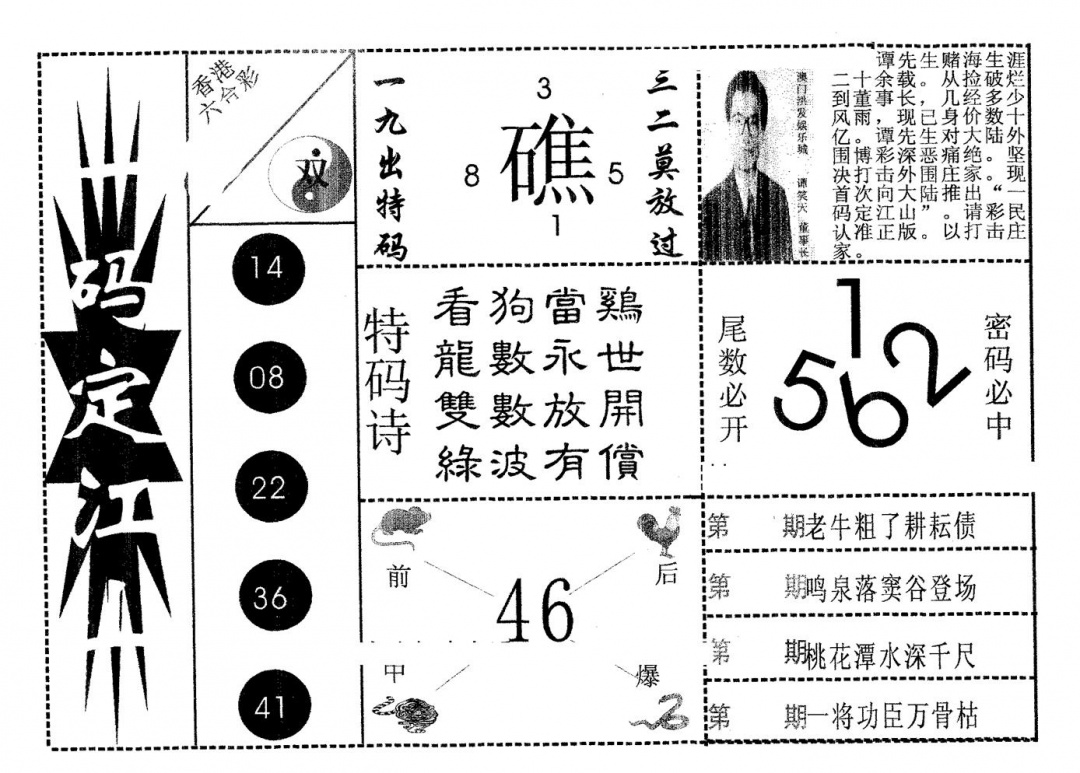 码定江
香港
六合彩
双
14
08
22
36
41
一九出特码
3
8 礁 5
1
三二莫放过
澳门洪发娱乐城 谭笑天 董事长
谭先生赌海生涯
二十余载。从捡破烂
到董事长，几经多少
风雨，现已身价数十
亿。谭先生对大陆外
围博彩深恶痛绝。坚
决打击外围庄家。现
首次向大陆推出“一
码定江山”。请彩民
认准正版。以打击庄
家。
特码诗
看狗當鷄
龍數永世
雙數放開
綠波有償
尾数必开
1
5 6 2
密码必中
前
后
46
甲
爆
第 期老牛粗了耕耘债
第 期鸣泉落窦谷登场
第 期桃花潭水深千尺
第 期一将功臣万骨枯